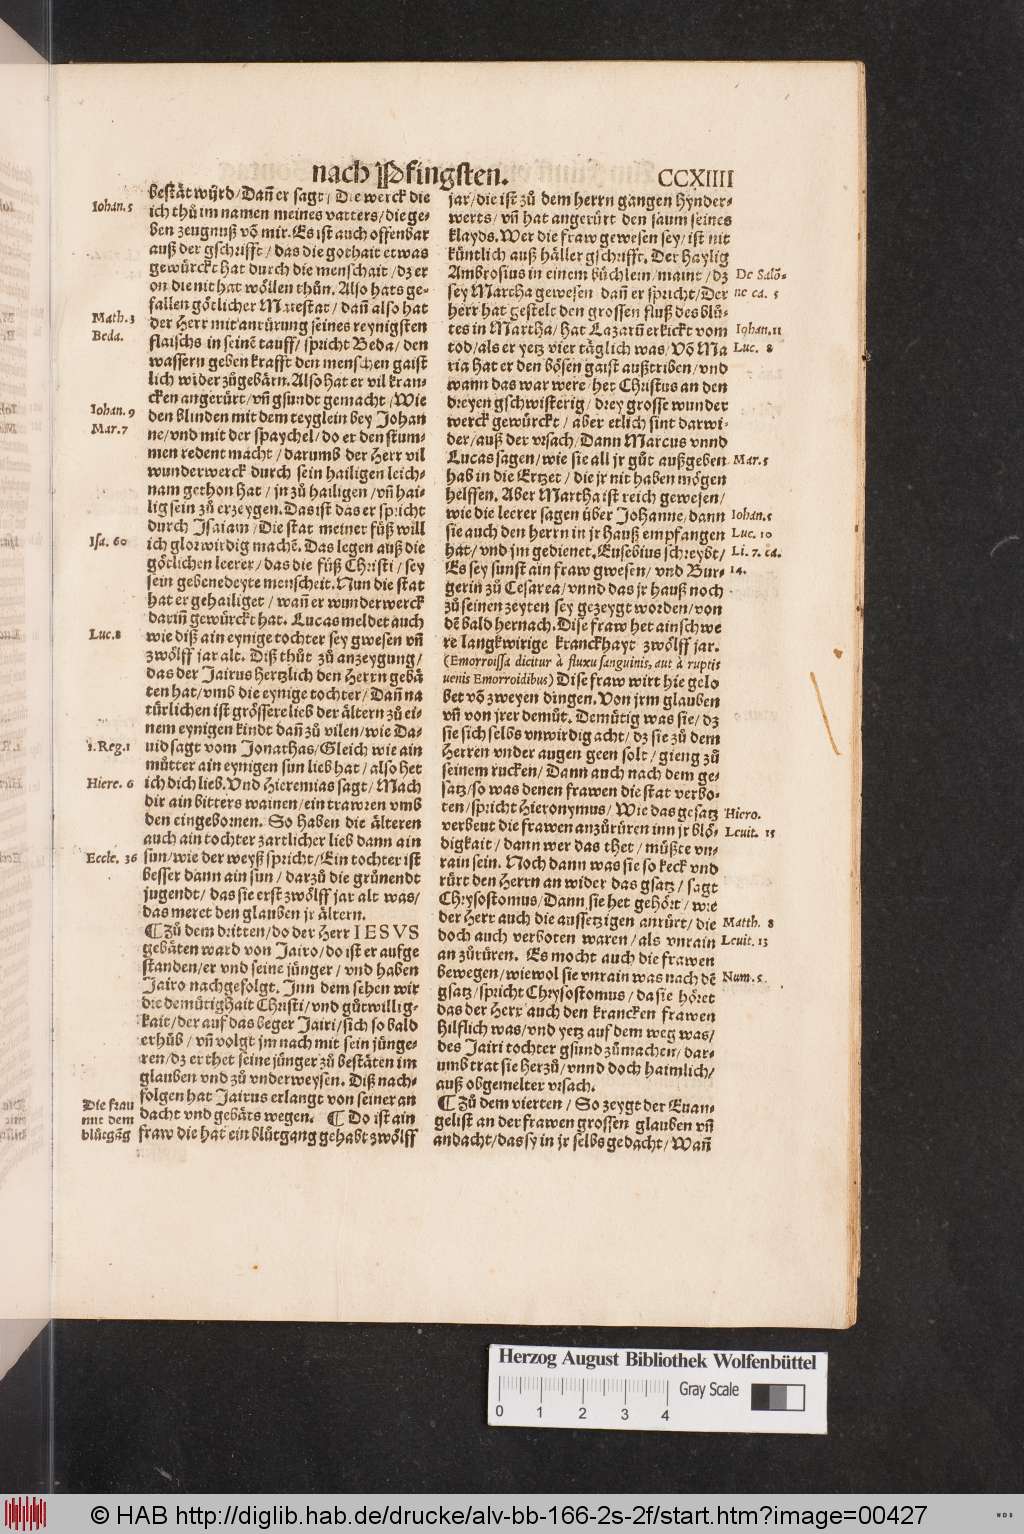 nach Pfingsten.
CCXIIII
beståt wŷrd/Dañ er sagt/Die werck die
ich thů im namen meines vatters/die ge-
ben zeugnuß võ mir. Es ist auch offenbar
auß der gschrifft/das die gothait etwas
gewürckt hat durch die menschait/dz er
on die nit hat wöllen thůn. Also hats ge-
fallen götlicher Maiestat/dañ also hat
der Herr mit anrürung seines reynigsten
flaischs in seinē tauff/spricht Beda/den
wassern geben krafft den menschen gaist
lich wider zůgebårn. Also hat er vil kran-
cken angerürt/vñ gsundt gemacht/Wie
den blinden mit dem teyglein bey Johan
ne/vnd mit der spaychel/do er den stum-
men redent macht/darumb der Herr vil
wunderwerck durch sein hailigen leich-
nam gethon hat/jn zů hailigen/vñ hai-
lig sein zů erzeygen. Das ist das er spricht
durch Isaiam/Die stat meiner füß will
ich glorwirdig machē. Das legen auß die
götlichen leerer/das die füß Christi/sey
sein gebenedeyte menscheit. Nun die stat
hat er gehailiget/wañ er wunderwerck
dariñ gewürckt hat. Lucas meldet auch
wie diß ain eynige tochter sey gwesen vñ
zwölff jar alt. Diß thůt zů anzeygung/
das der Jairus hertzlich den Herrn gebå
ten hat/vmb die eynige tochter/Dañ na
türlichen ist grössere lieb der åltern zů ei-
nem eynigen kindt dañ zů vilen/wie Da-
uid sagt vom Jonathas/Gleich wie ain
můtter ain eynigen sun lieb hat/also het
ich dich lieb. Vnd Hieremias sagt/Mach
dir ain bitters wainen/ein trawren vmb
den eingebornen. So haben die ålteren
auch ain tochter zartlicher lieb dann ain
sun/wie der weyß spricht/Ein tochter ist
besser dann ain sun/darzů die grünendt
jugendt/das sie erst zwölff jar alt was/
das meret den glauben jr åltern.
¶ Zů dem dritten/do der Herr IESVS
gebåten ward von Jairo/do ist er aufge
standen/er vnd seine jünger/vnd haben
Jairo nachgefolgt. Jnn dem sehen wir
die demůtighait Christi/vnd gůtwillig-
kait/der auf das beger Jairi/sich so bald
erhůb/vñ volgt jm nach mit sein jünge-
ren/dz er thet seine jünger zů beståten im
glauben vnd zů vnderweysen. Diß nach-
folgen hat Jairus erlangt von seiner an
dacht vnd gebåts wegen. ¶ Do ist ain
fraw die hat ein blůtgang gehabt zwölff
Iohan. 5
Math. 3
Beda.
Iohan. 9
Mar. 7
Isa. 60
Luc. 8
1. Reg. 1
Hiere. 6
Eccle. 36
Die frau
mit dem
blůtgãg
jar/die ist zů dem herrn gangen hynder-
werts/vñ hat angerürt den saum seines
klayds. Wer die fraw gewesen sey/ist nit
küntlich auß håller gschrifft. Der haylig
Ambrosius in einem bůchlein/maint/dz
sey Martha gewesen dañ er spricht/Der
herr hat gestelt den grossen fluß des blů-
tes in Martha/hat Lazarū erkickt vom
tod/als er yetz vier tåglich was/Võ Ma
ria hat er den bösen gaist außtriben/vnd
wann das war were/het Christus an den
dreyen gschwisterig/drey grosse wunder
werck gewürckt/aber etlich sint darwi-
der/auß der vrsach/Dann Marcus vnnd
Lucas sagen/wie sie all jr gůt außgeben
hab in die Ertzet/die jr nit haben mögen
helffen. Aber Martha ist reich gewesen/
wie die leerer sagen über Johanne/dann
sie auch den herrn in jr hauß empfangen
hat/vnd jm gedienet. Eusebius schreybt/
Es sey sunst ain fraw gwesen/vnd Bur-
gerin zů Cesarea/vnnd das jr hauß noch
zů seinen zeyten sey gezeygt worden/von
dē bald hernach. Dise fraw het ain schwe
re langkwirige kranckhayt zwölff jar.
(Emorroissa dicitur à fluxu sanguinis, aut à ruptis
uenis Emorroidibus) Dise fraw wirt hie gelo
bet võ zweyen dingen. Von jrm glauben
vñ von jrer demůt. Demůtig was sie/dz
sie sich selbs vnwirdig acht/dz sie zů dem
Herren vnder augen geen solt/gieng zů
seinem rucken/Dann auch nach dem ge-
satz/so was denen frawen die stat verbo-
ten/spricht Hieronymus/Wie das gesatz
verbeut die frawen anzůrüren inn jr blö-
digkait/dann wer das thet/můßte vn-
rain sein. Noch dann was sie so keck vnd
rürt den Herrn an wider das gsatz/sagt
Chrysostomus/Dann sie het gehört/wie
der Herr auch die aussetzigen anrürt/die
doch auch verboten waren/als vnrain
an zůrüren. Es mocht auch die frawen
bewegen/wiewol sie vnrain was nach dē
gsatz/spricht Chrysostomus/da sie höret
das der Herr auch den krancken frawen
hilflich was/vnd yetz auf dem weg was/
des Jairi tochter gsund zůmachen/dar-
umb trat sie herzů/vnnd doch haimlich/
auß obgemelter vrsach.
¶ Zů dem vierten/So zeygt der Euan-
gelist an der frawen grossen glauben vñ
andacht/das sy in jr selbs gedacht/Wañ
De Salō-
ne ca. 5
Iohan. 11
Luc. 8
Mar. 5
Iohan. 5
Luc. 10
Li. 7. ca.
14.
Hiero.
Leuit. 15
Matth. 8
Leuit. 13
Num. 5.
Herzog August Bibliothek Wolfenbüttel
Gray Scale
0 1 2 3 4
© HAB http://diglib.hab.de/drucke/alv-bb-166-2s-2f/start.htm?image=00427